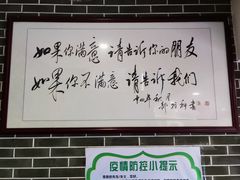 如果你满意 请告诉你的朋友
如果你不满意 请告诉我们
疫情防控小提示